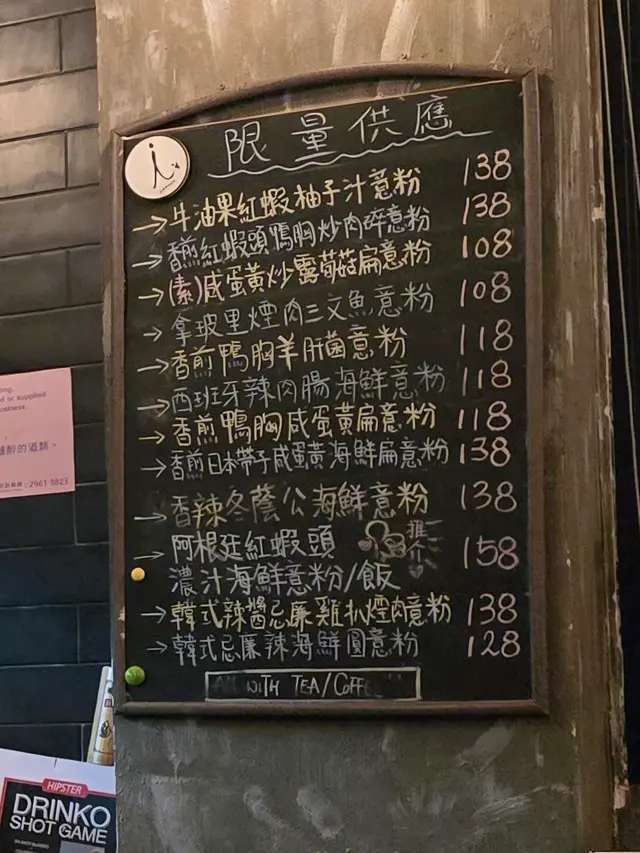 限量供應
→牛油果紅蝦柚子汁意粉 138
→香煎紅蝦頭鴨胸炒肉碎意粉 138
→(素)咸蛋黃炒露荀菇扁意粉 108
→拿玻里煙肉三文魚意粉 108
→香煎鴨胸羊肝菌意粉 118
→西班牙辣肉腸海鮮意粉 118
→香煎鴨胸咸蛋黃扁意粉 118
→香煎日本帶子咸蛋黃海鮮扁意粉 138
→香辣冬蔭公海鮮意粉 138
→阿根廷紅蝦頭 推介
濃汁海鮮意粉/飯 158
→韓式辣醬忌廉雞扒煙肉意粉 138
→韓式忌廉辣海鮮圓意粉 128
WITH TEA/COFFEE
ong.
d or supplied
usiness.
醉的酒類。
:2961 8823
HIPSTER
DRINKO
SHOT GAME